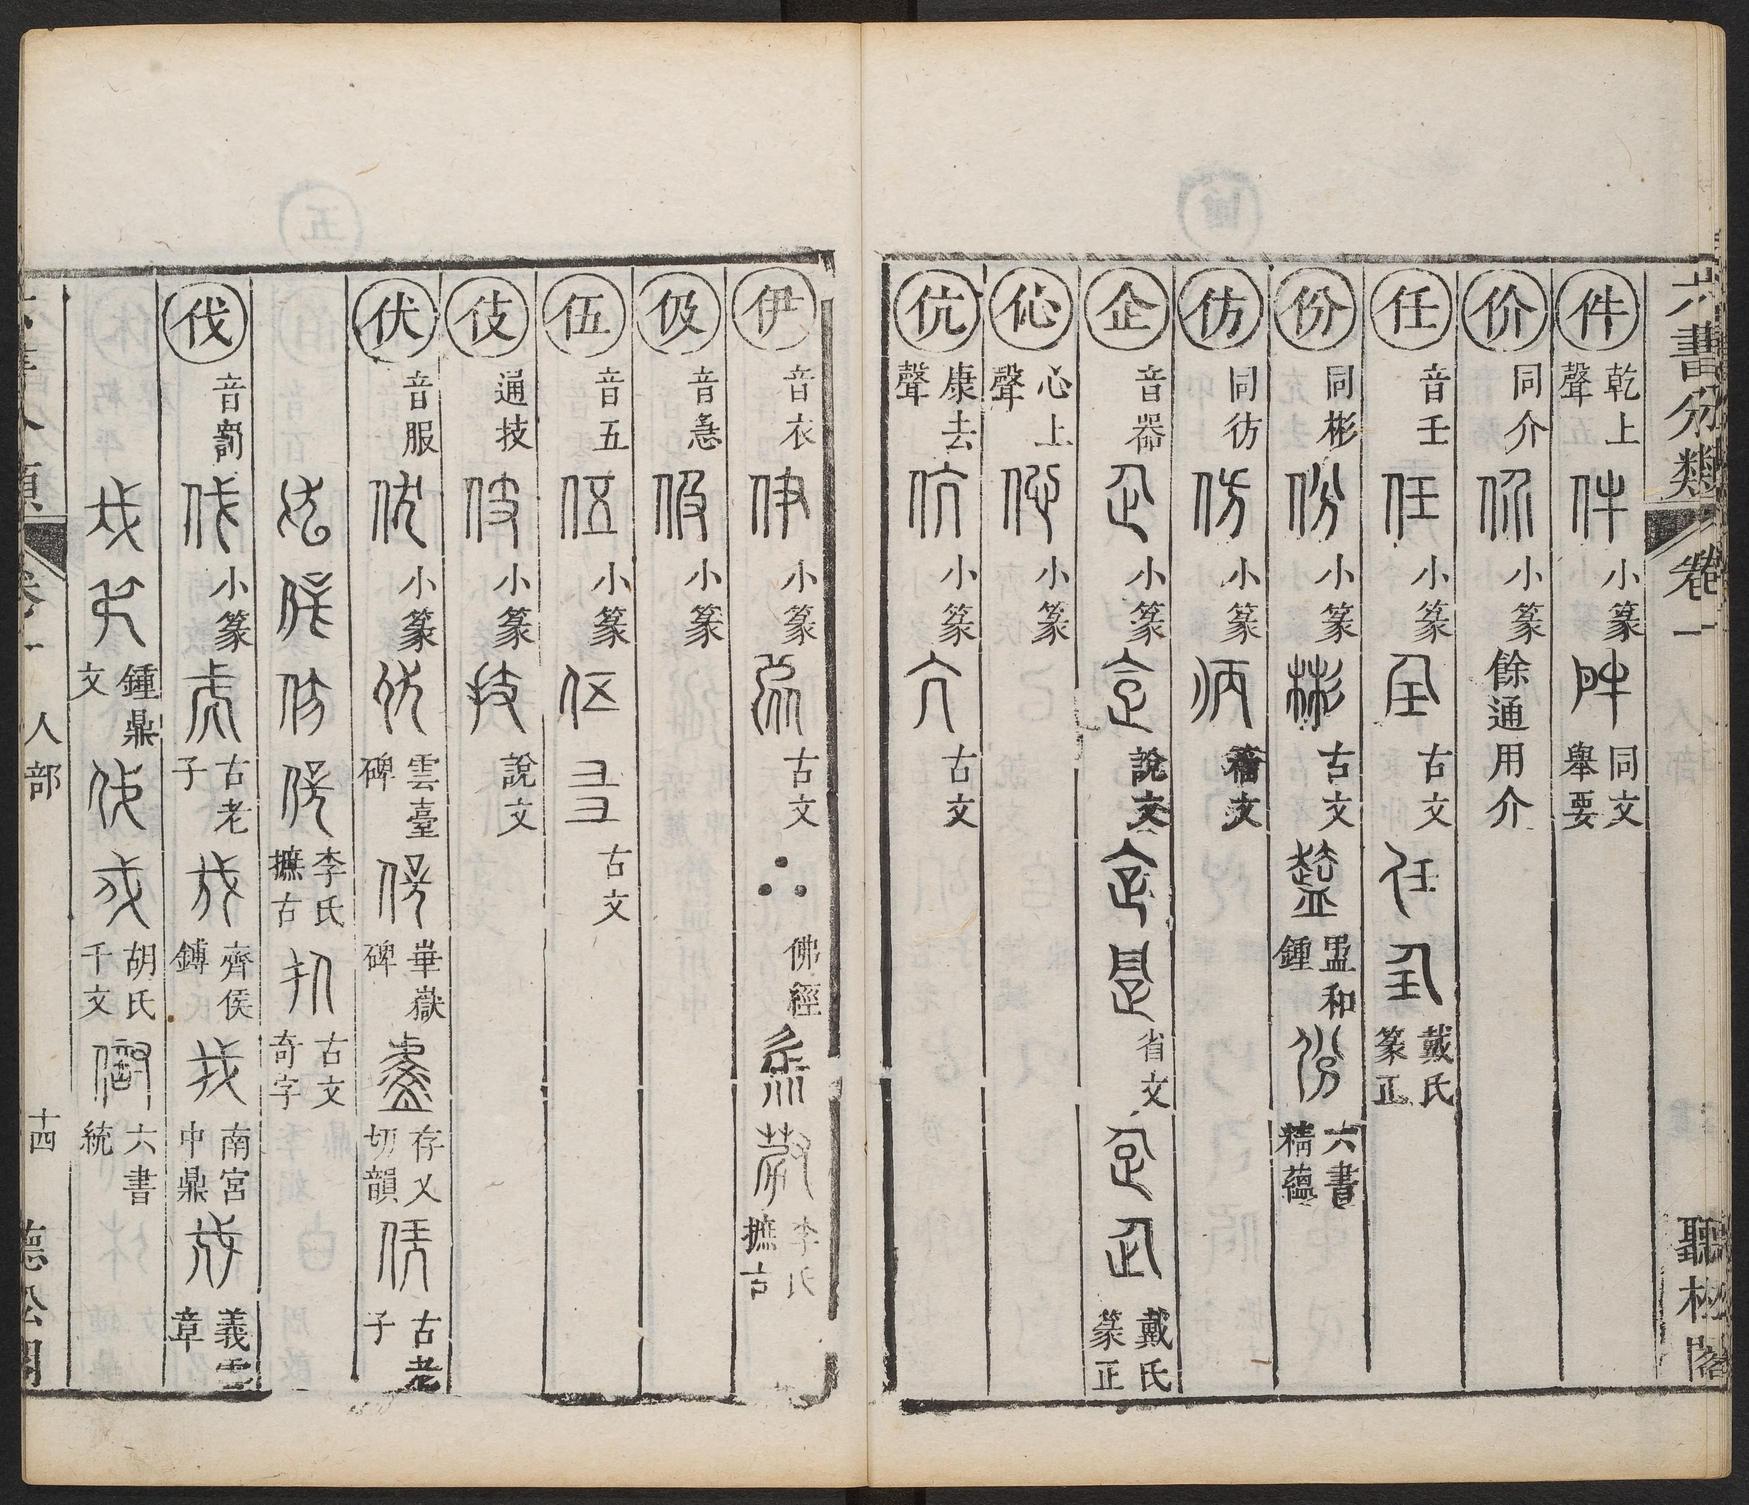 六書分類 卷一 聽松閣
件 乾上聲 小篆 同文舉要
价 同介 小篆 餘通用介
任 音壬 小篆 古文 戴氏篆正
份 同彬 小篆 古文 盄和鍾 六書精蘊
仿 同彷 小篆 籀文
企 音器 小篆 說文 省文 戴氏篆正
伈 心上聲 小篆
伉 康去聲 小篆 古文
伊 音衣 小篆 古文 佛經 李氏摭古
伋 音急 小篆
伍 音五 小篆 古文
伎 通技 小篆 說文
伏 音服 小篆 雲臺碑 華嶽碑 存乂切韻 古老子
李氏摭古 古文奇字
伐 音罰 小篆 古老子 齊侯鎛 南宮中鼎 義雲章
鍾鼎文 胡氏千文 六書統
人部 十四